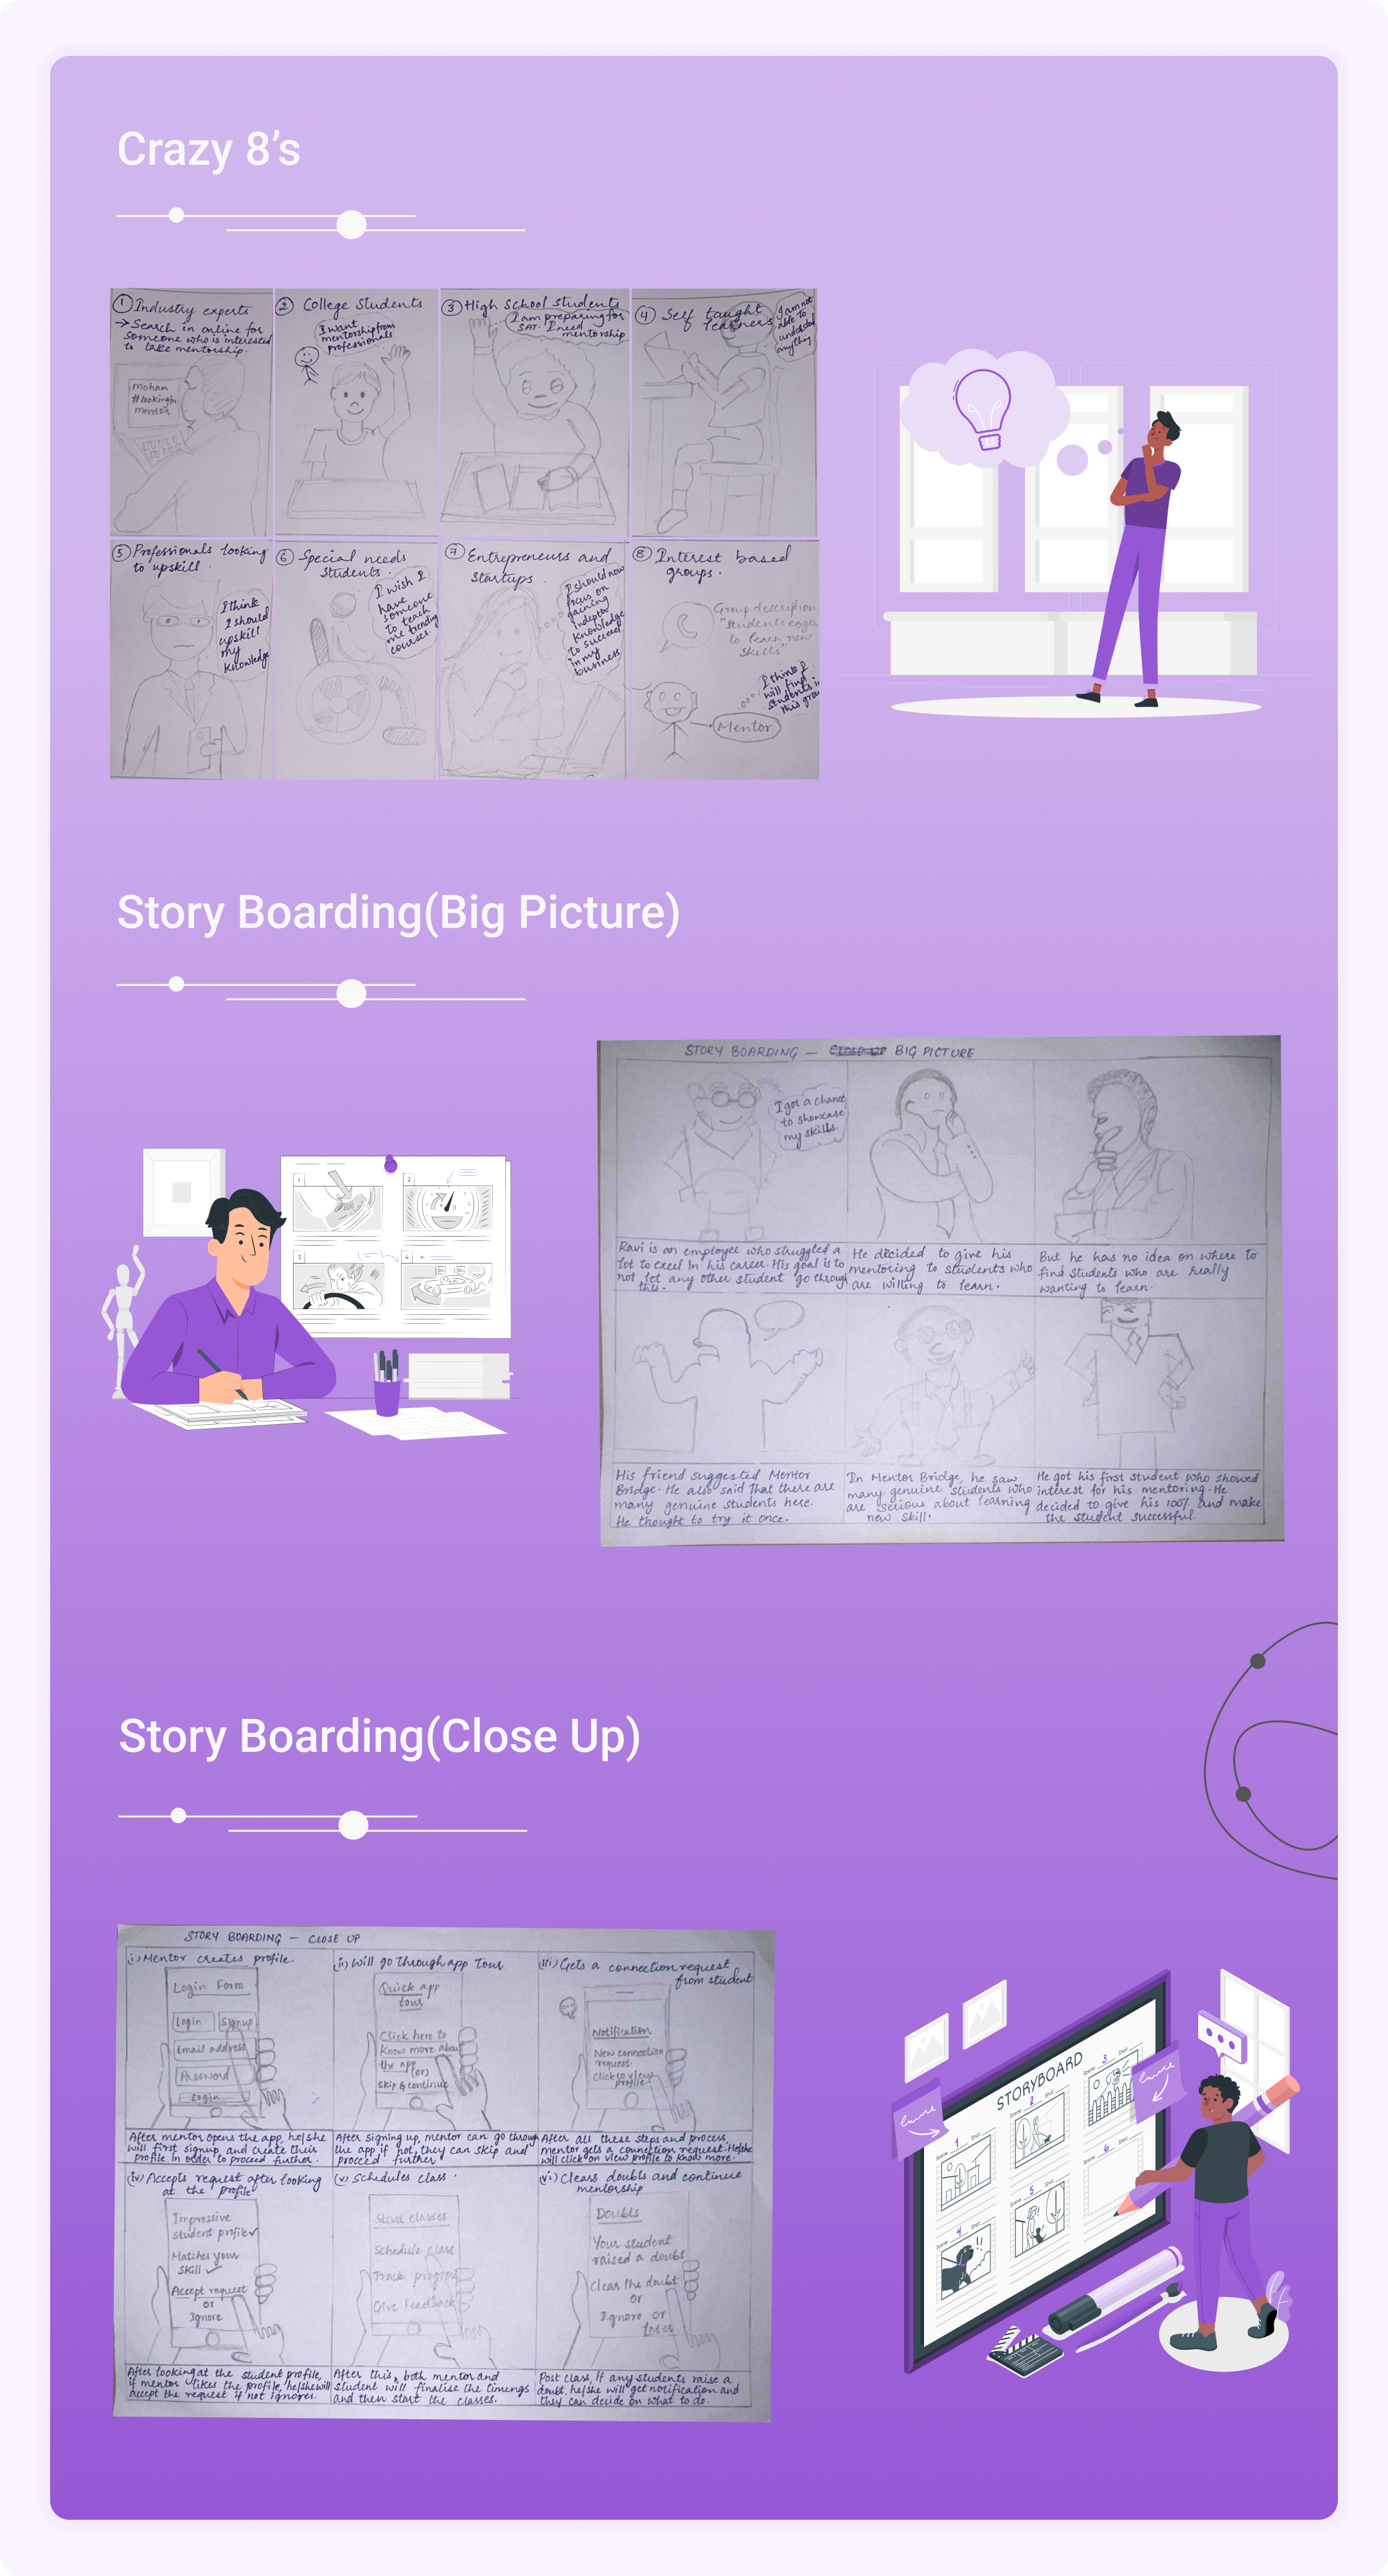 Crazy 8's
① Industry experts
→ Search in online for
someone who is interested
to take mentorship.
Mohan
#lookingfor
mentor
② College Students
I want
mentorship from
professionals
③ High School students
I am preparing for
SAT. I need
mentorship
④ Self taught
learners
I am not
able to
understand
anything
⑤ Professionals looking
to upskill.
I think
I should
upskill
my
knowledge
⑥ Special needs
Students.
I wish I
have
someone
to teach
me trending
courses.
⑦ Entrepreneurs and
startups.
I should now
focus on
gaining
indepth
knowledge
to succeed
in my
business
⑧ Interest based
groups.
Group description
"Students eager
to learn new
skills"
I think I
will find
students in
this
Mentor
Story Boarding(Big Picture)
1
2
3
STORY BOARDING — BIG PICTURE
I got a chance
to showcase
my skills.
Ravi is an employee who struggled a
lot to excel in his career. His goal is to
not let any other student go through
this.
He decided to give his
mentoring to students who
are willing to learn.
But he has no idea on where to
find students who are really
wanting to learn.
His friend suggested Mentor
Bridge. He also said that there are
many genuine students here.
He thought to try it once.
In Mentor Bridge, he saw
many genuine students who
are serious about learning
new skill.
He got his first student who showed
interest for his mentoring. He
decided to give his 100% and make
the student successful.
Story Boarding(Close Up)
STORY BOARDING — CLOSE UP
(i) Mentor creates profile.
Login Form
Login Signup
Email address
Password
Login
After mentor opens the app, he/she
will first signup and create their
profile in order to proceed further.
(ii) Will go through app Tour
Quick app
tour
Click here to
Know more about
the app
(or)
Skip & continue
After signing up, mentor can go through
the app if not, they can skip and
proceed further
(iii) Gets a connection request
from student
Notification
New connection
request
Click to view
profile
After all these steps and process,
mentor gets a connection request. He/she
will click on view profile to know more.
(iv) Accepts request after looking
at the profile
Impressive
student profile ✓
Matches your
skill ✓
Accept request
or
Ignore
After looking at the student profile,
if mentor likes the profile, he/she will
accept the request if not ignores.
(v) Schedules class.
Start classes
Schedule class
Track progress
Give Feedback
After this, both mentor and
student will finalise the timings
and then start the classes.
(vi) Clears doubts and continue
mentorship
Doubts
Your student
raised a doubt
Clear the doubt
or
Ignore or
later
Post class, If any students raise a
doubt, he/she will get notification and
they can decide on what to do.
STORYBOARD
Scene 1 Shot
Scene 2 Shot
Scene 3 Shot
Scene 4 Shot
!!
Scene 5 Shot
Scene 6 Shot